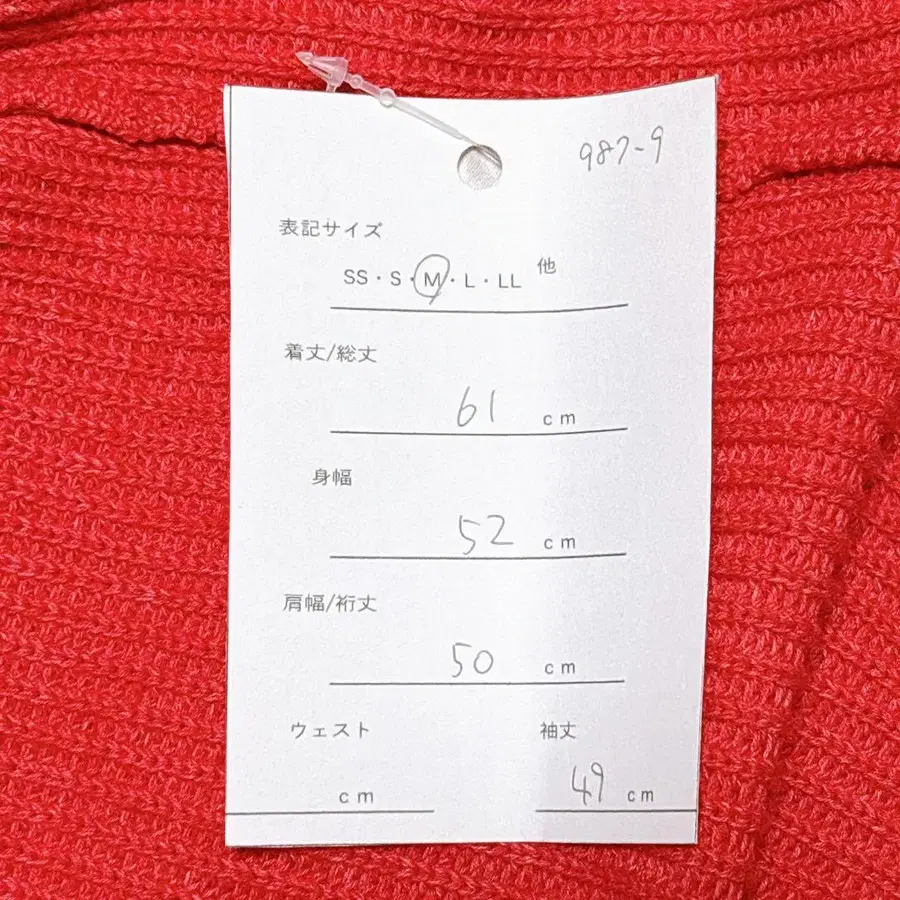 987-9
表記サイズ
SS・S・M・L・LL 他
着丈/総丈
61 cm
身幅
52 cm
肩幅/裄丈
50 cm
ウェスト 袖丈
cm 49 cm